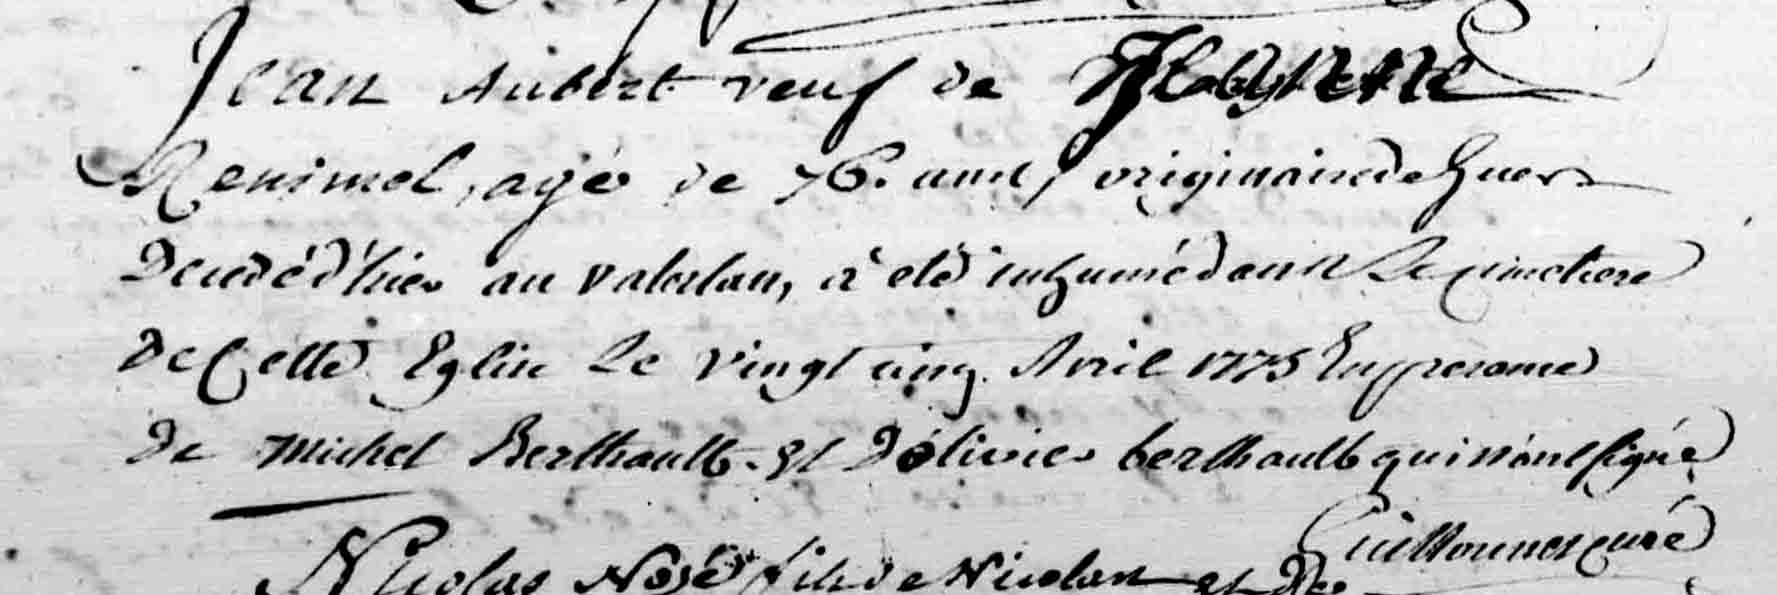 Jean Aubert veuf de
Renimel, agé de 76. ans, originaire de Guer
Decedé d'hier au valerlan, a eté inhumé dans Le cimetiere
de Cette Eglise Le vingt cinq Avril 1775 En presence
de Michel Berthault Et D'olivier berthault qui n'ont signé
Guilloumer curé
Nicolas Nosé fils de Nicolas et de